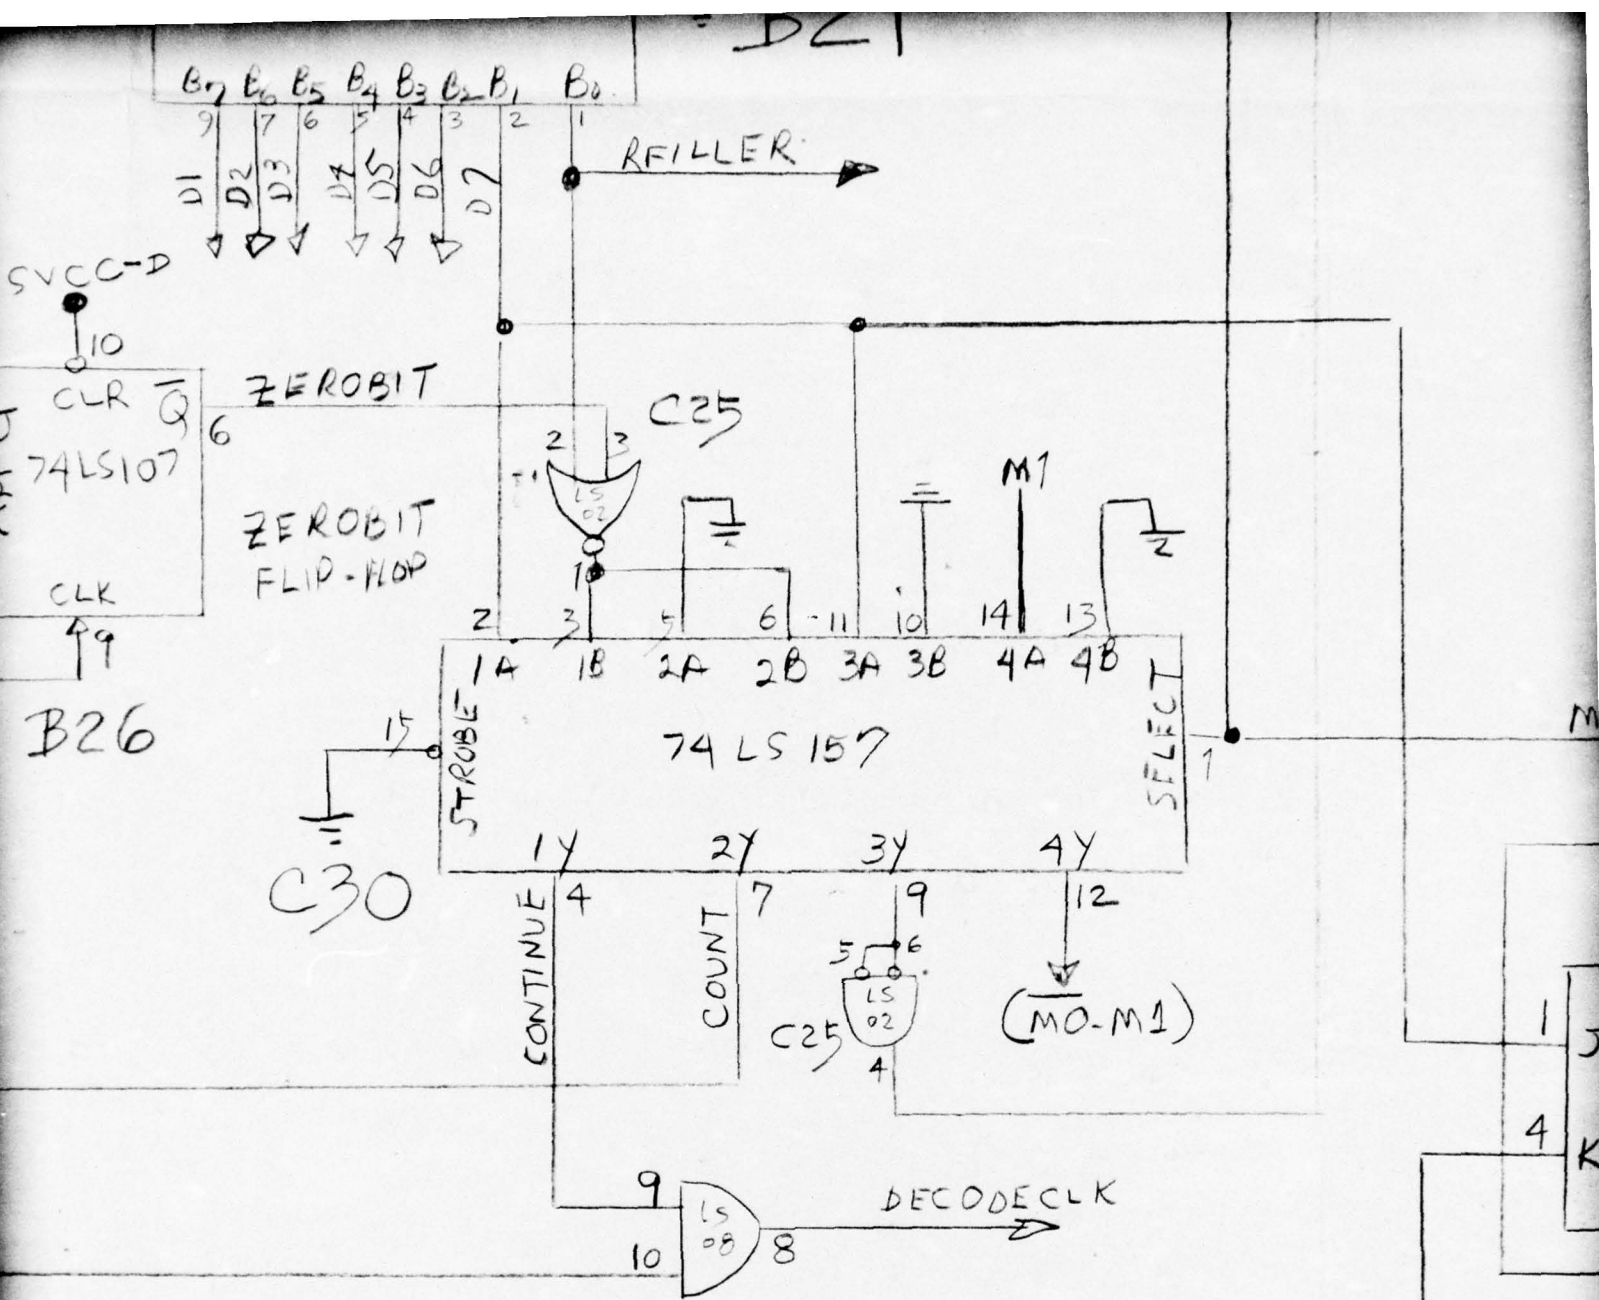 B7 B6 B5 B4 B3 B2 B1 B0
9 7 6 5 4 3 2 1
D1 D2 D3 D4 D5 D6 D7
RFILLER
5VCC-D
10
CLR Q̅
6
ZEROBIT
C25
74LS107
2 3
LS
02
1
M1
ZEROBIT
FLIP-FLOP
CLK
9
B26
2 3 5 6 11 10 14 13
1A 1B 2A 2B 3A 3B 4A 4B
15
STROBE
74LS157
SELECT
1
M
C30
1Y 2Y 3Y 4Y
4 7 9 12
CONTINUE
COUNT
5 6
LS
02
C25
4
(M̅0̅-M1)
1
J
4
K
9
10
LS
08
8
DECODECLK